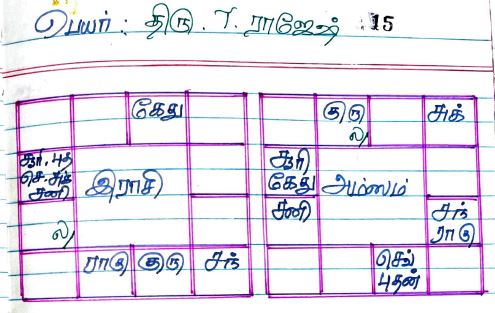 பெயர் : திரு . T. ராஜேஷ் 15
கேது குரு ல/ சுக்
சூரி. புத சூரி
செ. சுக் இராசி கேது அம்ஸம்
சனி சனி சந்
ல/ ராகு
ராகு குரு சந் செவ்
புதன்